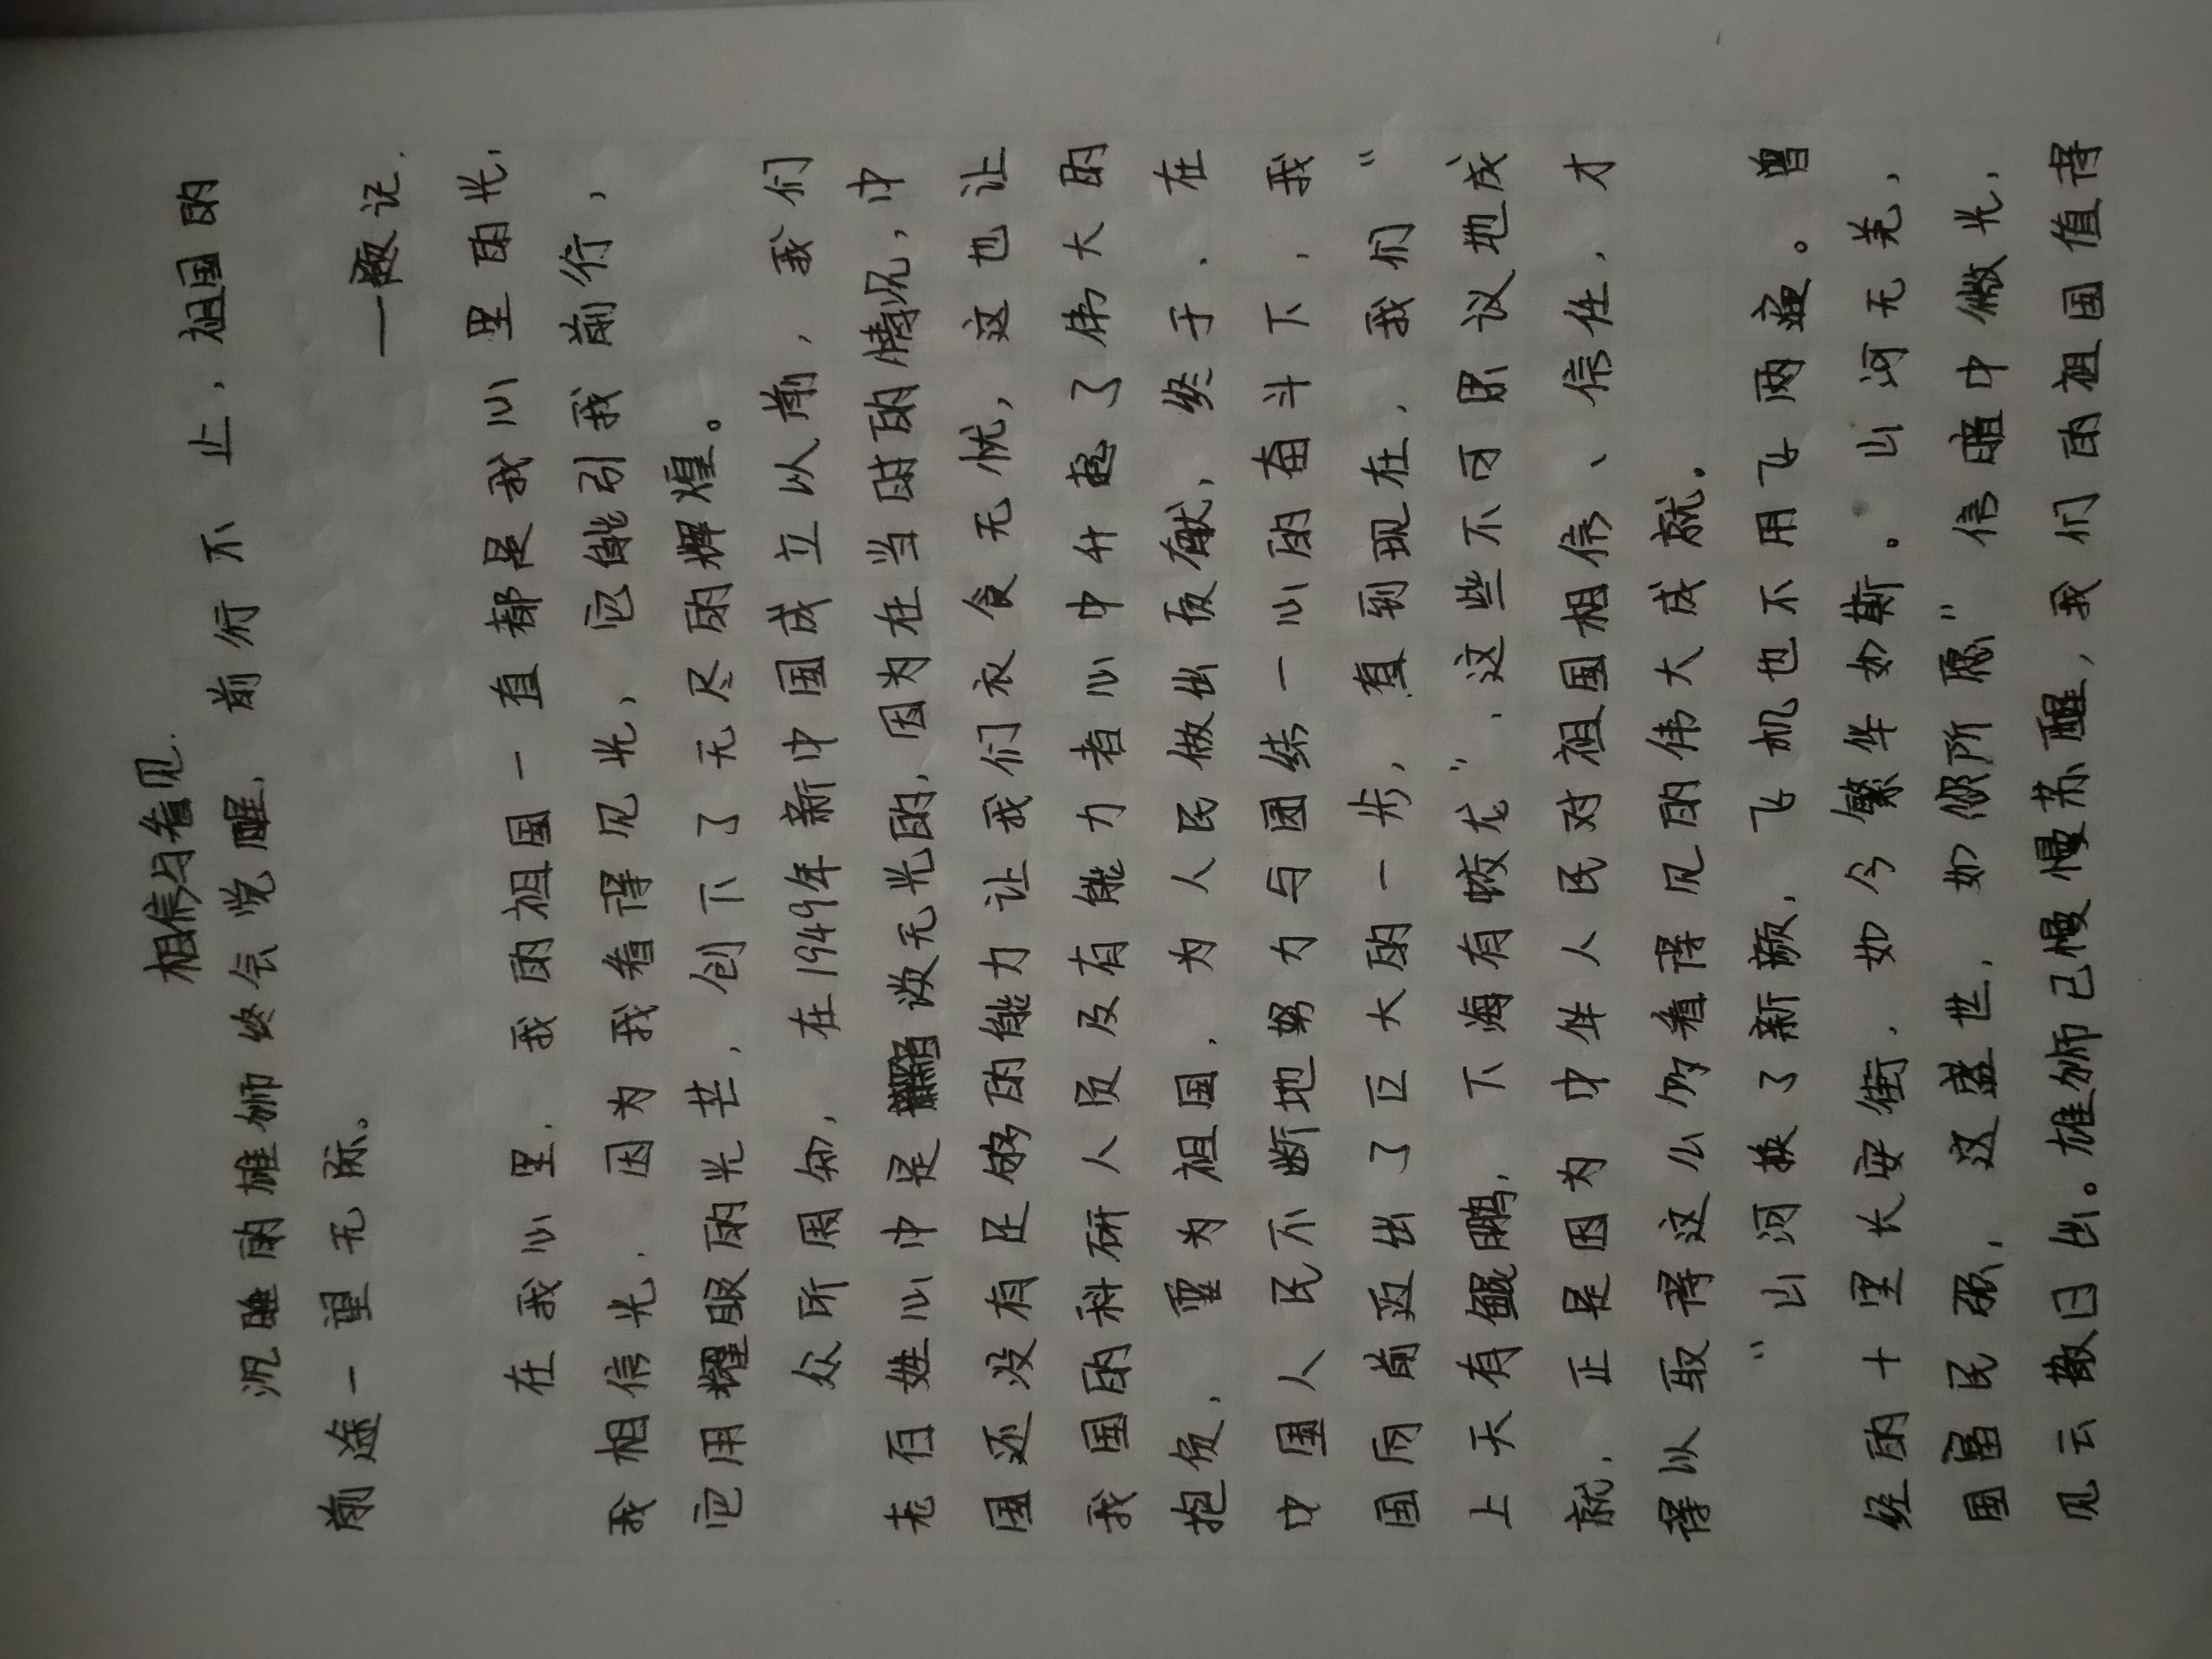 相信与看见.
沉睡的雄狮终会觉醒，前行不止，祖国的
前途一望无际。
—题记.
在我心里，我的祖国一直都是我心里的光，
我相信光，因为我看得见光，它能引我前行，
它用耀眼的光芒，创下了无尽的辉煌。
众所周知，在1949年新中国成立以前，我们
老百姓心中是没无光的，因为在当时的情况，中
国还没有足够的能力让我们衣食无忧，这也让
我国的科研人员及有能力者心中升起了伟大的
抱负，要为祖国，为人民做出贡献，终于，在
中国人民不断地努力与团结一心的奋斗下，我
国向前迈出了巨大的一步，直到现在，我们“
上天有鲲鹏，下海有蛟龙”，这些不可思议地成
就，正是因为中华人民对祖国相信、信任，才
得以取得这么多看得见的伟大成就。
“山河换了新颜，飞机也不用飞两遍。曾
经的十里长安街，如今繁华如斯。山河无恙，
国富民强，这盛世，如你所愿”信暗中微光，
见云散日出。雄狮已慢慢苏醒，我们的祖国值得